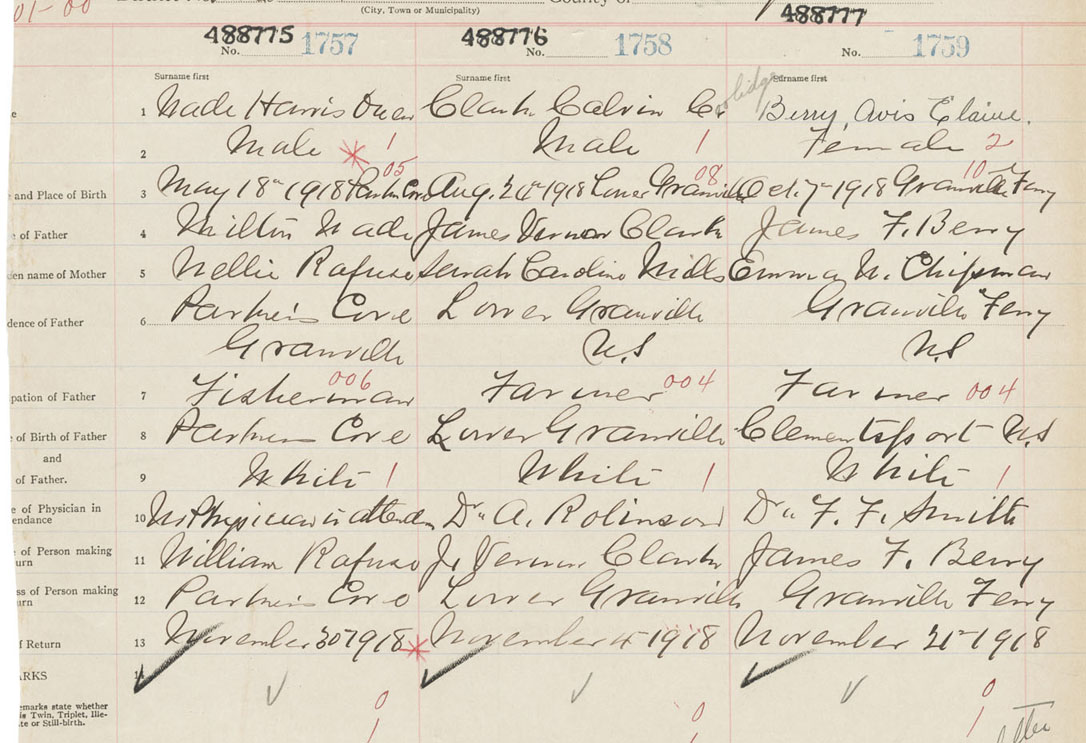 01-00
District No. County of
(City, Town or Municipality)
488775 488776 488777
No. 1757 No. 1758 No. 1759
Surname first Surname first Surname first
1 Wade Harris Owen Clark Calvin Coolidge Berry, Avis Elaine.
2 Male 1 Male 1 Female 2
05 08 10
and Place of Birth 3 May 18th 1918 Parkers Cove Aug. 24th 1918 Lower Granville Oct. 7th 1918 Granville Ferry
of Father 4 Milton Wade James Vernon Clark James F. Berry
den name of Mother 5 Nellie Rafuse Sarah Caroline Mills Emma W. Chipman
dence of Father 6 Parkers Cove Lower Granville Granville Ferry
Granville N.S N.S
pation of Father 7 Fisherman 006 Farmer 004 Farmer 004
of Birth of Father 8 Parkers Cove Lower Granville Clementsport N.S
and
of Father. 9 White 1 White 1 White 1
e of Physician in
endance 10 No Physician in attendan Dr. A. Robinson Dr. F. F. Smith
of Person making
urn 11 William Rafuse J. Vernon Clark James F. Berry
ss of Person making
urn 12 Parkers Cove Lower Granville Granville Ferry
f Return 13 November 30 1918 November 4 1918 November 21st 1918
ARKS 14
emarks state whether
is Twin, Triplet, Ille-
te or Still-birth.
0 0 0
1 1 1